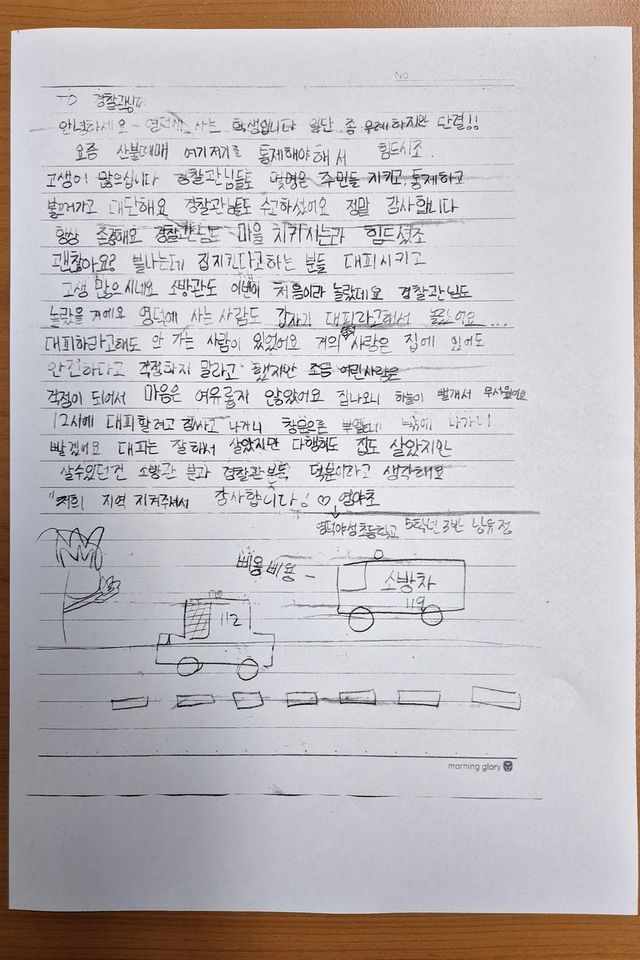 NO
TO 경찰관님께
안녕하세요 영덕에 사는 학생입니다 일단 좀 무례하지만 단결!!
요즘 산불때매 여기저기를 통제해야해서 힘드시조.
고생이 많으십니다 경찰관님들도 몇명은 주민들 지키고, 통제하고
불끄러가고 대단해요 경찰관님들도 수고하셨어요 정말 감사합니다
항상 존경해요 경찰관님도 마을 치키시는라 힘드셨조
괜찮아요? 불나는데 집지킨다고하는 분들 대피시키고
고생 많으시네요 소방관도 이번에 처음이라 놀랐데요 경찰관님도
놀랐을거에요 영덕에 사는 사람도 갑자기 대피라고해서 놀랐어요...
대피하라고해도 안 가는 사람이 있었어요 거의 사람은 집에 있어도
안전하다고 걱정하지 말라고 했지만 조금 어린사람은
걱정이 되어서 마음은 여유롭지 않았어요 집나오니 하늘이 빨개서 무서웠어요
12시에 대피할려고 짐싸고 나가니 창문은 밖에 나가니
빨겠어요 대피는 잘해서 살았지만 다행히도 집도 살았지만
살수있던건 소방관 분과 경찰관분득 덕분이라고 생각해요
"저희 지역 지켜주셔서 감사합니다! ♡ 영야초
영덕야성초등학교 5학년 3반 남유정
삐용삐용-
소방차
119
112
morning glory